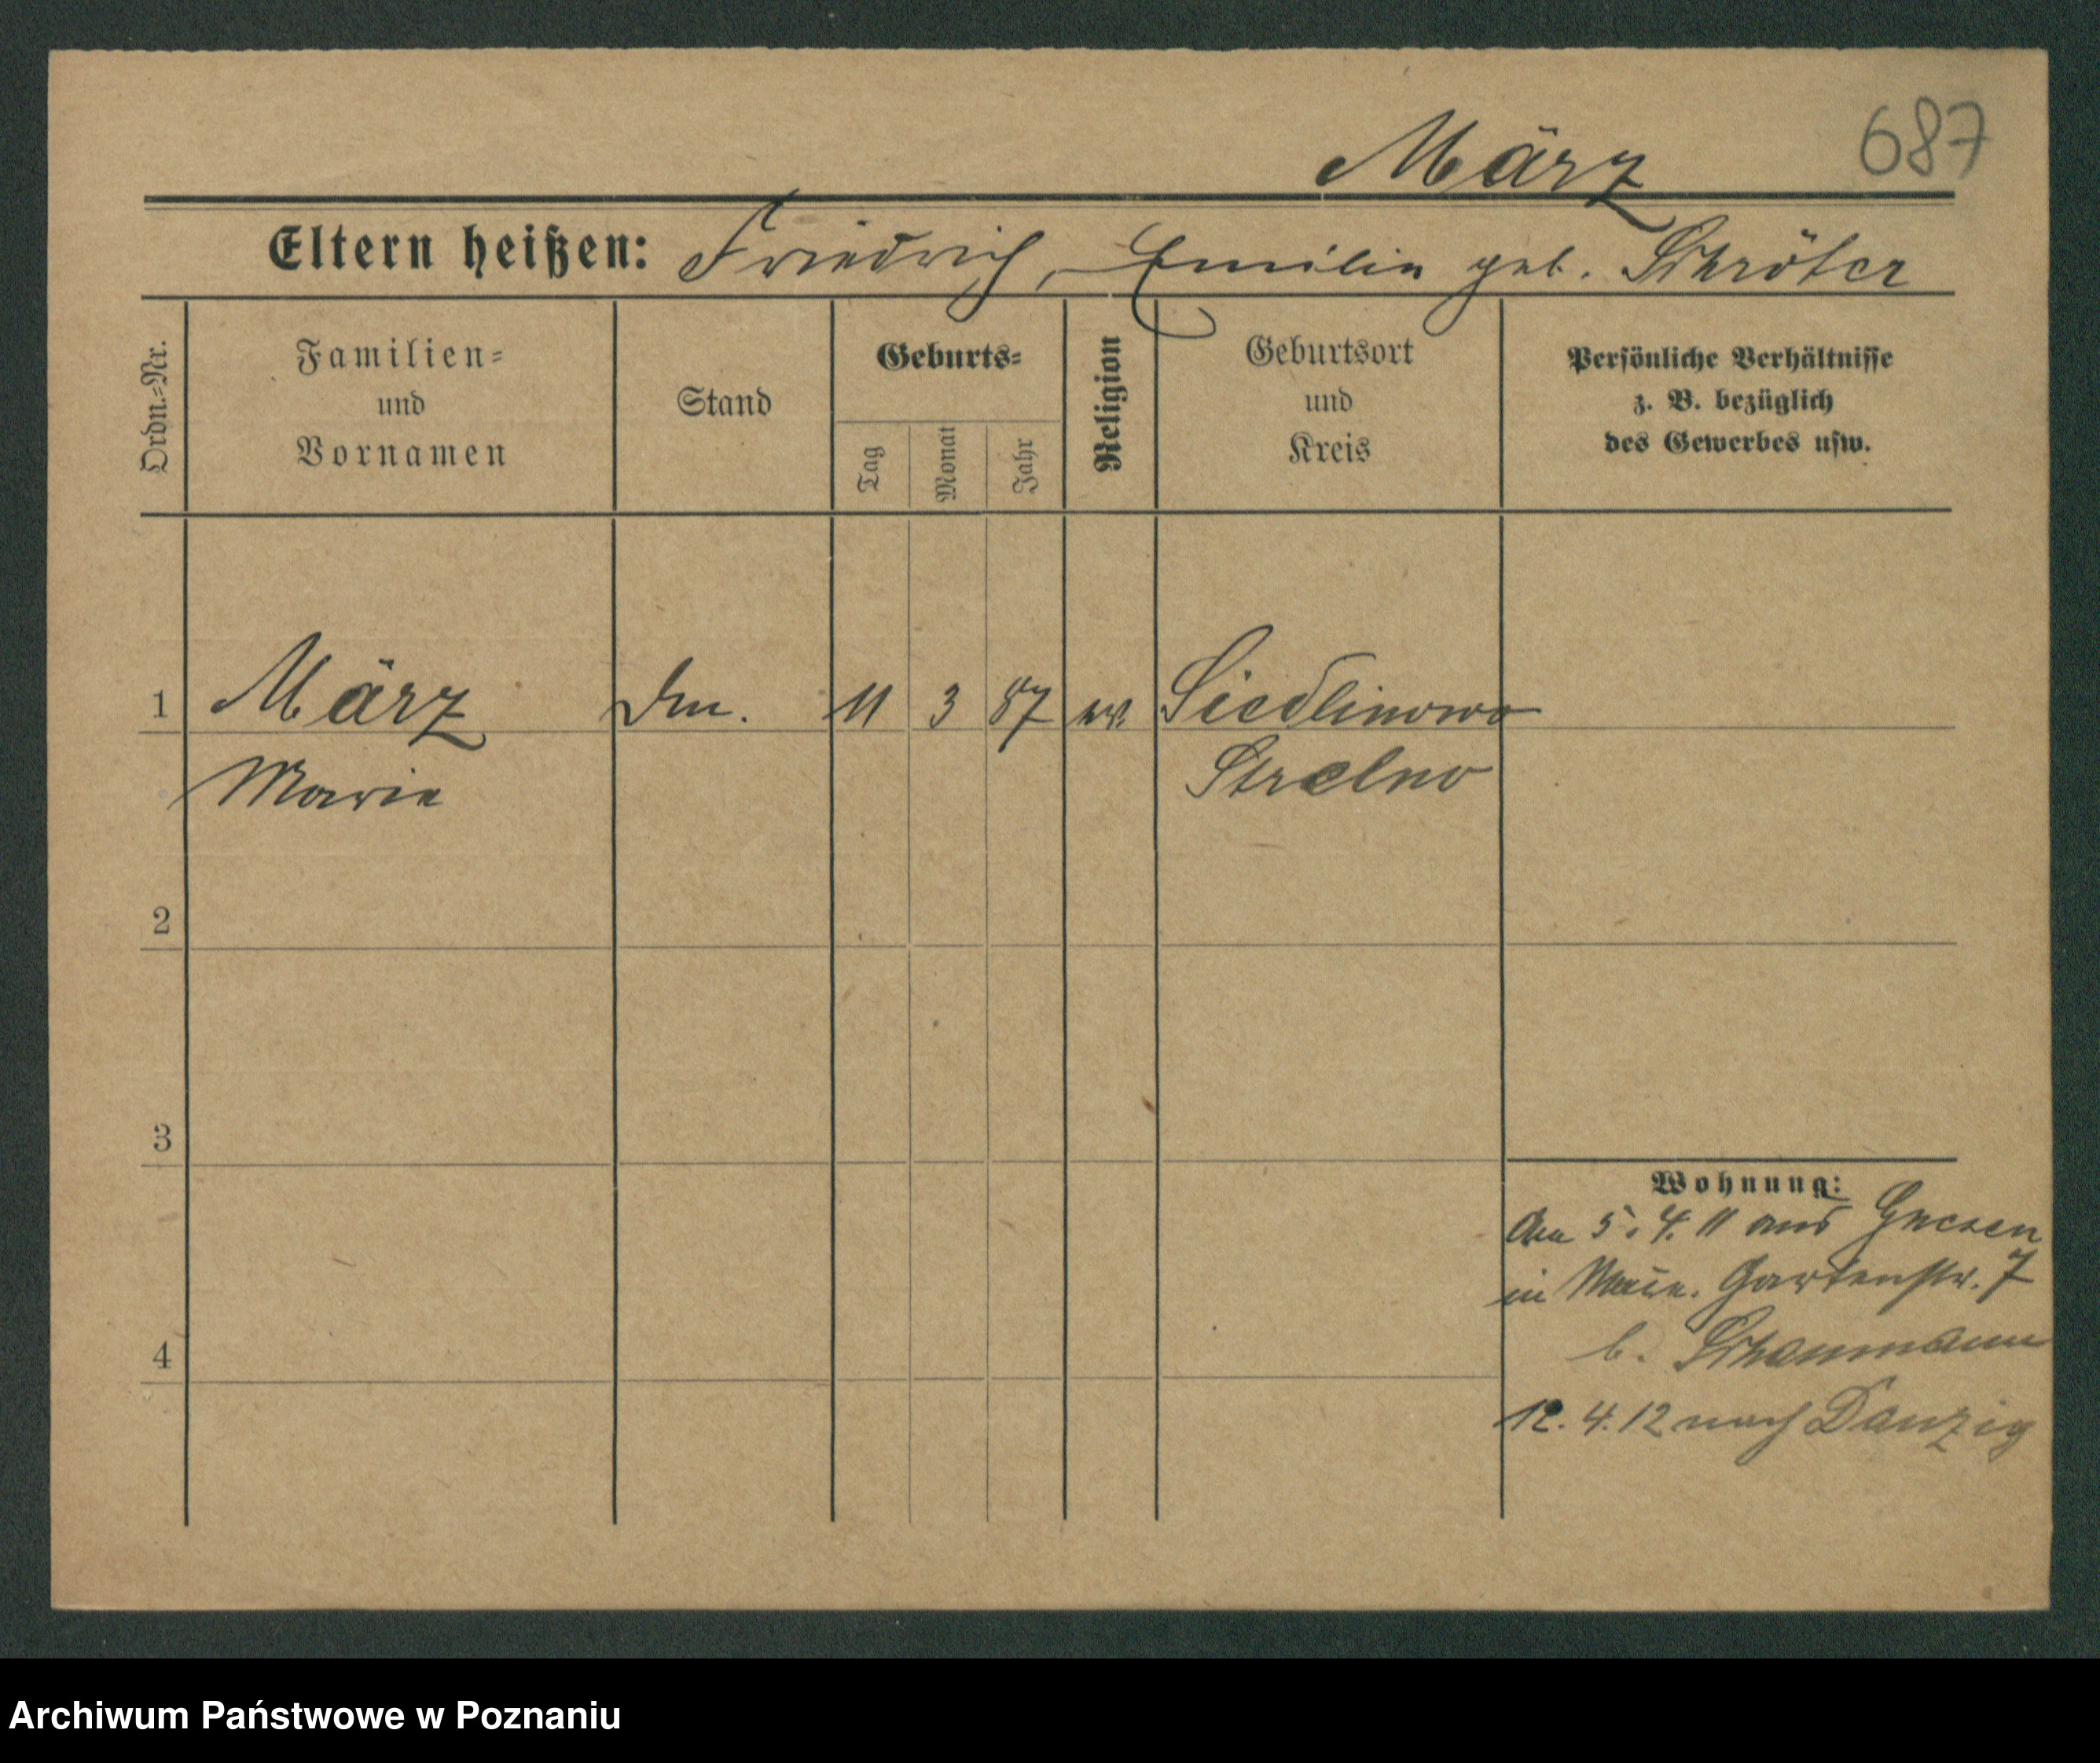 687
März
Eltern heißen: Friedrich, Emilie geb. Schröter
Ordn.-Nr.
Familien-
und
Vornamen
Stand
Geburts-
Tag
Monat
Jahr
Religion
Geburtsort
und
Kreis
Persönliche Verhältnisse
z. B. bezüglich
des Gewerbes usw.
1 März 11 3 87 ev. Siedlimowo
Marie Strelno
2
3
4
Wohnung:
5. 4. 11 aus Gnesen
in Gartenstr. 7
b.
12. 4. 12 nach Danzig
Archiwum Państwowe w Poznaniu